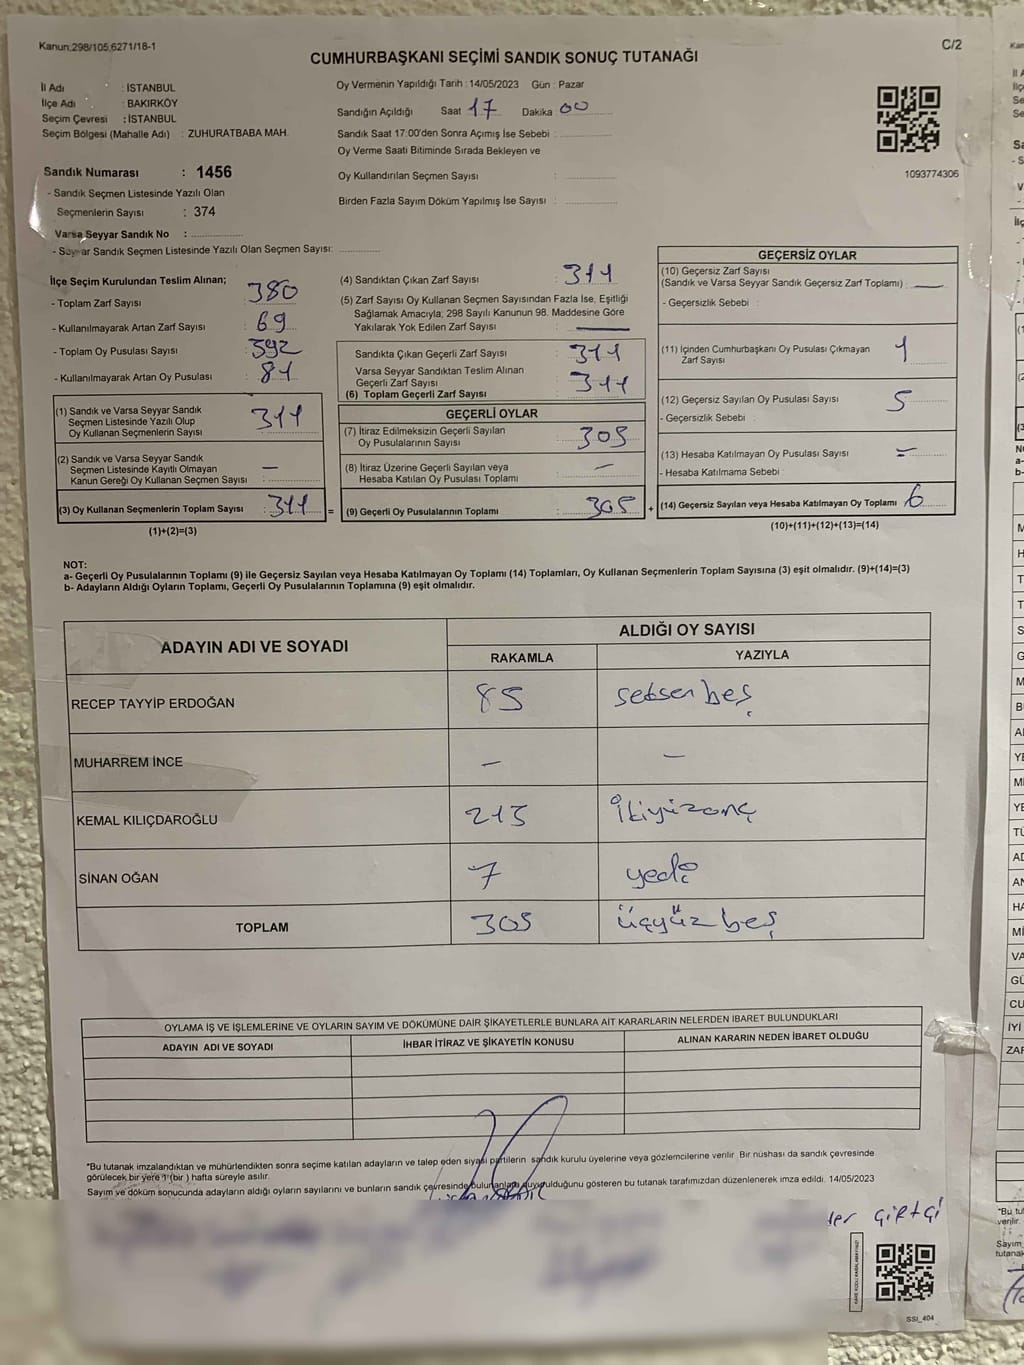 Kanun;298/105;6271/18-1
C/2
CUMHURBAŞKANI SEÇİMİ SANDIK SONUÇ TUTANAĞI
İl Adı : İSTANBUL
İlçe Adı : BAKIRKÖY
Seçim Çevresi : İSTANBUL
Seçim Bölgesi (Mahalle Adı) : ZUHURATBABA MAH.
Sandık Numarası : 1456
- Sandık Seçmen Listesinde Yazılı Olan
Seçmenlerin Sayısı : 374
Varsa Seyyar Sandık No :
- Seyyar Sandık Seçmen Listesinde Yazılı Olan Seçmen Sayısı:
Oy Vermenin Yapıldığı Tarih : 14/05/2023 Gün : Pazar
Sandığın Açıldığı Saat 17 Dakika 00
Sandık Saat 17:00'den Sonra Açımış İse Sebebi :
Oy Verme Saati Bitiminde Sırada Bekleyen ve
Oy Kullandırılan Seçmen Sayısı :
Birden Fazla Sayım Döküm Yapılmış İse Sayısı :
1093774306
İlçe Seçim Kurulundan Teslim Alınan;
- Toplam Zarf Sayısı : 380
- Kullanılmayarak Artan Zarf Sayısı : 69
- Toplam Oy Pusulası Sayısı : 392
- Kullanılmayarak Artan Oy Pusulası : 81
(1) Sandık ve Varsa Seyyar Sandık
Seçmen Listesinde Yazılı Olup
Oy Kullanan Seçmenlerin Sayısı : 311
(2) Sandık ve Varsa Seyyar Sandık
Seçmen Listesinde Kayıtlı Olmayan
Kanun Gereği Oy Kullanan Seçmen Sayısı : —
(3) Oy Kullanan Seçmenlerin Toplam Sayısı : 311 =
(1)+(2)=(3)
(4) Sandıktan Çıkan Zarf Sayısı : 311
(5) Zarf Sayısı Oy Kullanan Seçmen Sayısından Fazla İse, Eşitliği
Sağlamak Amacıyla; 298 Sayılı Kanunun 98. Maddesine Göre
Yakılarak Yok Edilen Zarf Sayısı : —
Sandıkta Çıkan Geçerli Zarf Sayısı : 311
Varsa Seyyar Sandıktan Teslim Alınan
Geçerli Zarf Sayısı
(6) Toplam Geçerli Zarf Sayısı : 311
GEÇERLİ OYLAR
(7) İtiraz Edilmeksizin Geçerli Sayılan
Oy Pusulalarının Sayısı : 305
(8) İtiraz Üzerine Geçerli Sayılan veya
Hesaba Katılan Oy Pusulası Toplamı : —
(9) Geçerli Oy Pusulalarının Toplamı : 305 +
GEÇERSİZ OYLAR
(10) Geçersiz Zarf Sayısı
(Sandık ve Varsa Seyyar Sandık Geçersiz Zarf Toplamı) : —
- Geçersizlik Sebebi :
(11) İçinden Cumhurbaşkanı Oy Pusulası Çıkmayan
Zarf Sayısı 1
(12) Geçersiz Sayılan Oy Pusulası Sayısı 5
- Geçersizlik Sebebi :
(13) Hesaba Katılmayan Oy Pusulası Sayısı : —
- Hesaba Katılmama Sebebi :
(14) Geçersiz Sayılan veya Hesaba Katılmayan Oy Toplamı 6
(10)+(11)+(12)+(13)=(14)
NOT:
a- Geçerli Oy Pusulalarının Toplamı (9) ile Geçersiz Sayılan veya Hesaba Katılmayan Oy Toplamı (14) Toplamları, Oy Kullanan Seçmenlerin Toplam Sayısına (3) eşit olmalıdır. (9)+(14)=(3)
b- Adayların Aldığı Oyların Toplamı, Geçerli Oy Pusulalarının Toplamına (9) eşit olmalıdır.
ADAYIN ADI VE SOYADI
ALDIĞI OY SAYISI
RAKAMLA YAZIYLA
RECEP TAYYİP ERDOĞAN 85 seksen beş
MUHARREM İNCE — —
KEMAL KILIÇDAROĞLU 213 İkiyüzonüç
SİNAN OĞAN 7 yedi
TOPLAM 305 üçyüz beş
OYLAMA İŞ VE İŞLEMLERİNE VE OYLARIN SAYIM VE DÖKÜMÜNE DAİR ŞİKAYETLERLE BUNLARA AİT KARARLARIN NELERDEN İBARET BULUNDUKLARI
ADAYIN ADI VE SOYADI İHBAR İTİRAZ VE ŞİKAYETİN KONUSU ALINAN KARARIN NEDEN İBARET OLDUĞU
*Bu tutanak imzalandıktan ve mühürlendikten sonra seçime katılan adayların ve talep eden siyasi partilerin sandık kurulu üyelerine veya gözlemcilerine verilir. Bir nüshası da sandık çevresinde
görülecek bir yere 1 (bir ) hafta süreyle asılır.
Sayım ve döküm sonucunda adayların aldığı oyların sayılarını ve bunların sandık çevresinde bulunanlara duyurulduğunu gösteren bu tutanak tarafımızdan düzenlenerek imza edildi. 14/05/2023
çiftçi
SSI_404